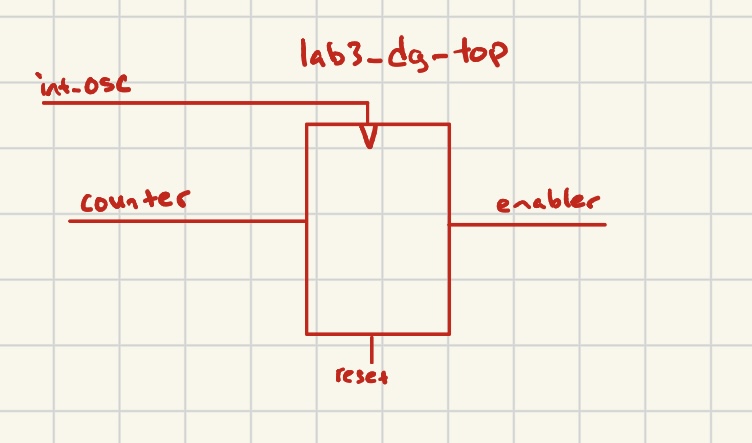 lab3_dg_top
int_osc
counter
enabler
reset